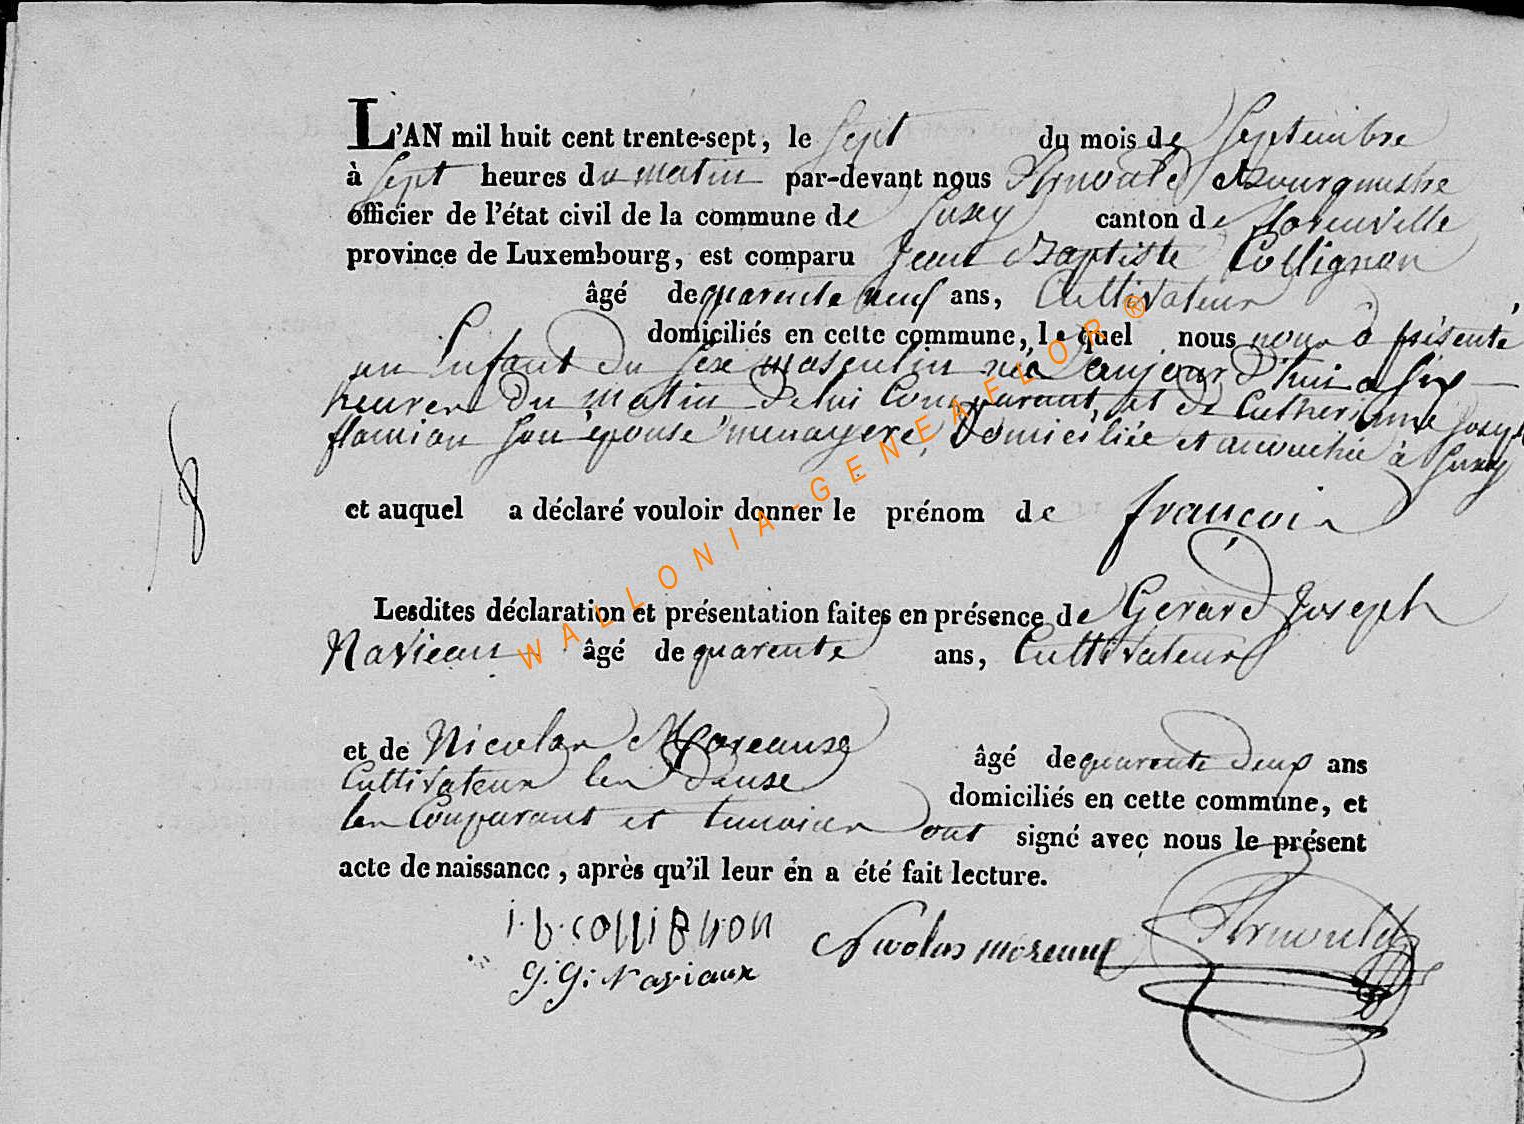 L'AN mil huit cent trente-sept, le sept du mois de Septembre
à sept heures du matin par-devant nous Arnould Bourgmestre
officier de l'état civil de la commune de Suxy canton de florenville
province de Luxembourg, est comparu Jean Baptiste Collignon
âgé de quarente neuf ans, Cultivateur
domiciliés en cette commune, lequel nous nous a présenté
un Enfant du sexe masculin né aujourd'hui a six
heures du matin de lui Comparant, et de Catherinne Joseph
son épouse menagere, Domiciliée et accouchée à Suxy
et auquel a déclaré vouloir donner le prénom de françois
Lesdites déclaration et présentation faites en présence de Gerard Joseph
Naviaux âgé de quarente ans, Cultivateur
et de Nicolas Moreaux âgé de quarente deux ans
Cultivateur les deux domiciliés en cette commune, et
les Comparant et temoins ont signé avec nous le présent
acte de naissance, après qu'il leur en a été fait lecture.
j. b. collignon
Nicolas moreaux
Arnould
g. g: Naviaux
WALLONIA-GENEAFLOR®